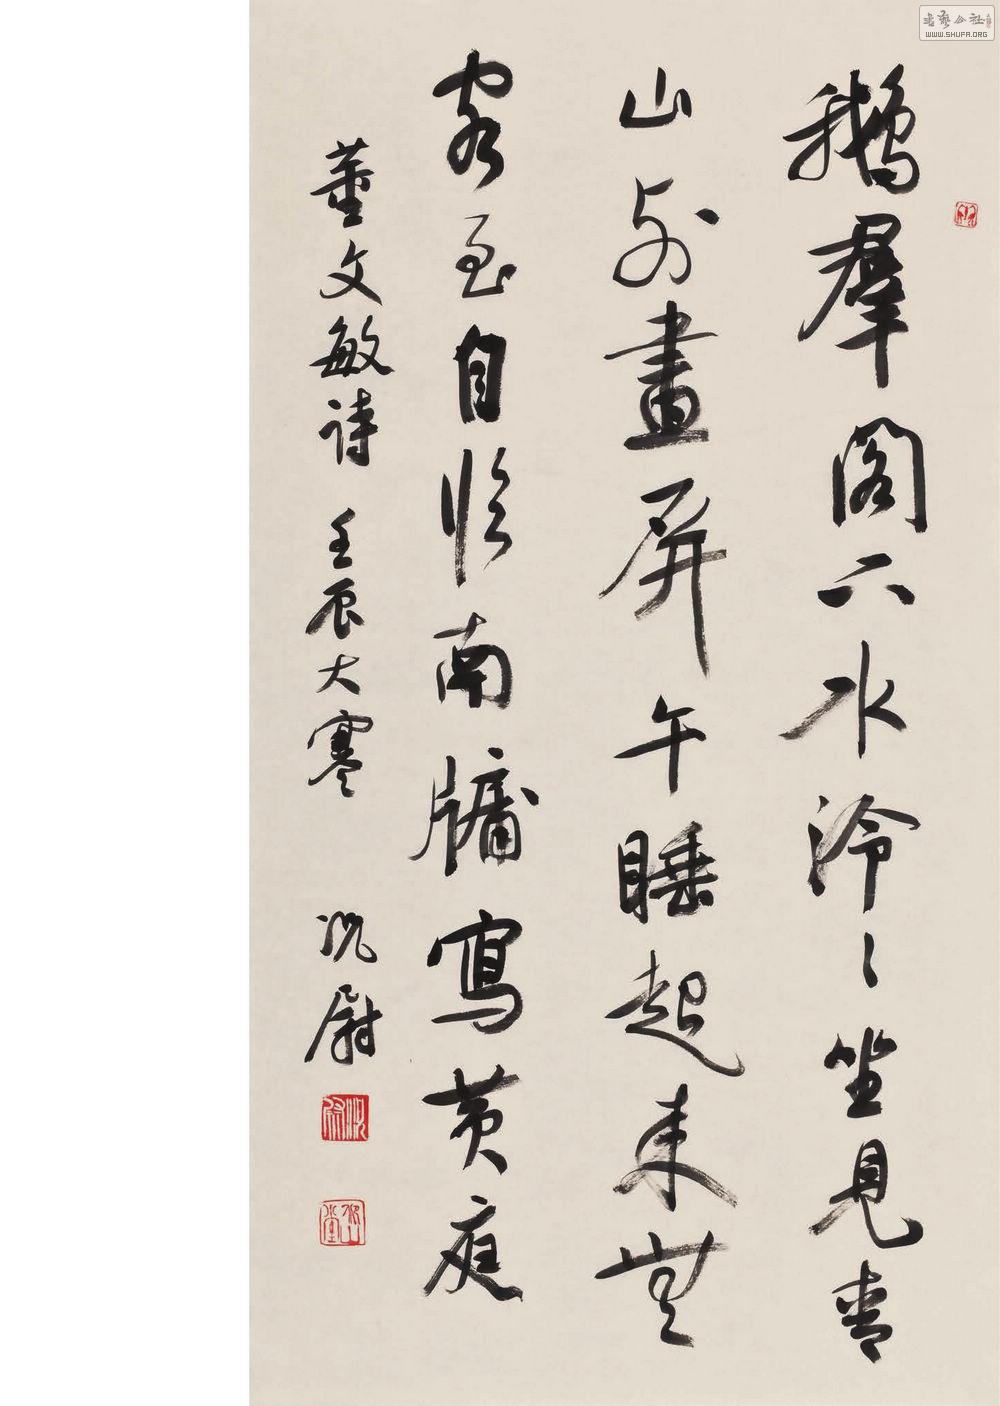 鵝羣閣下水泠〻坐見青
山列畫屏午睡起來無
客至自臨南牖寫黃庭
董文敏詩 壬辰大寒 沈尉
書藝公社
WWW.SHUFA.ORG